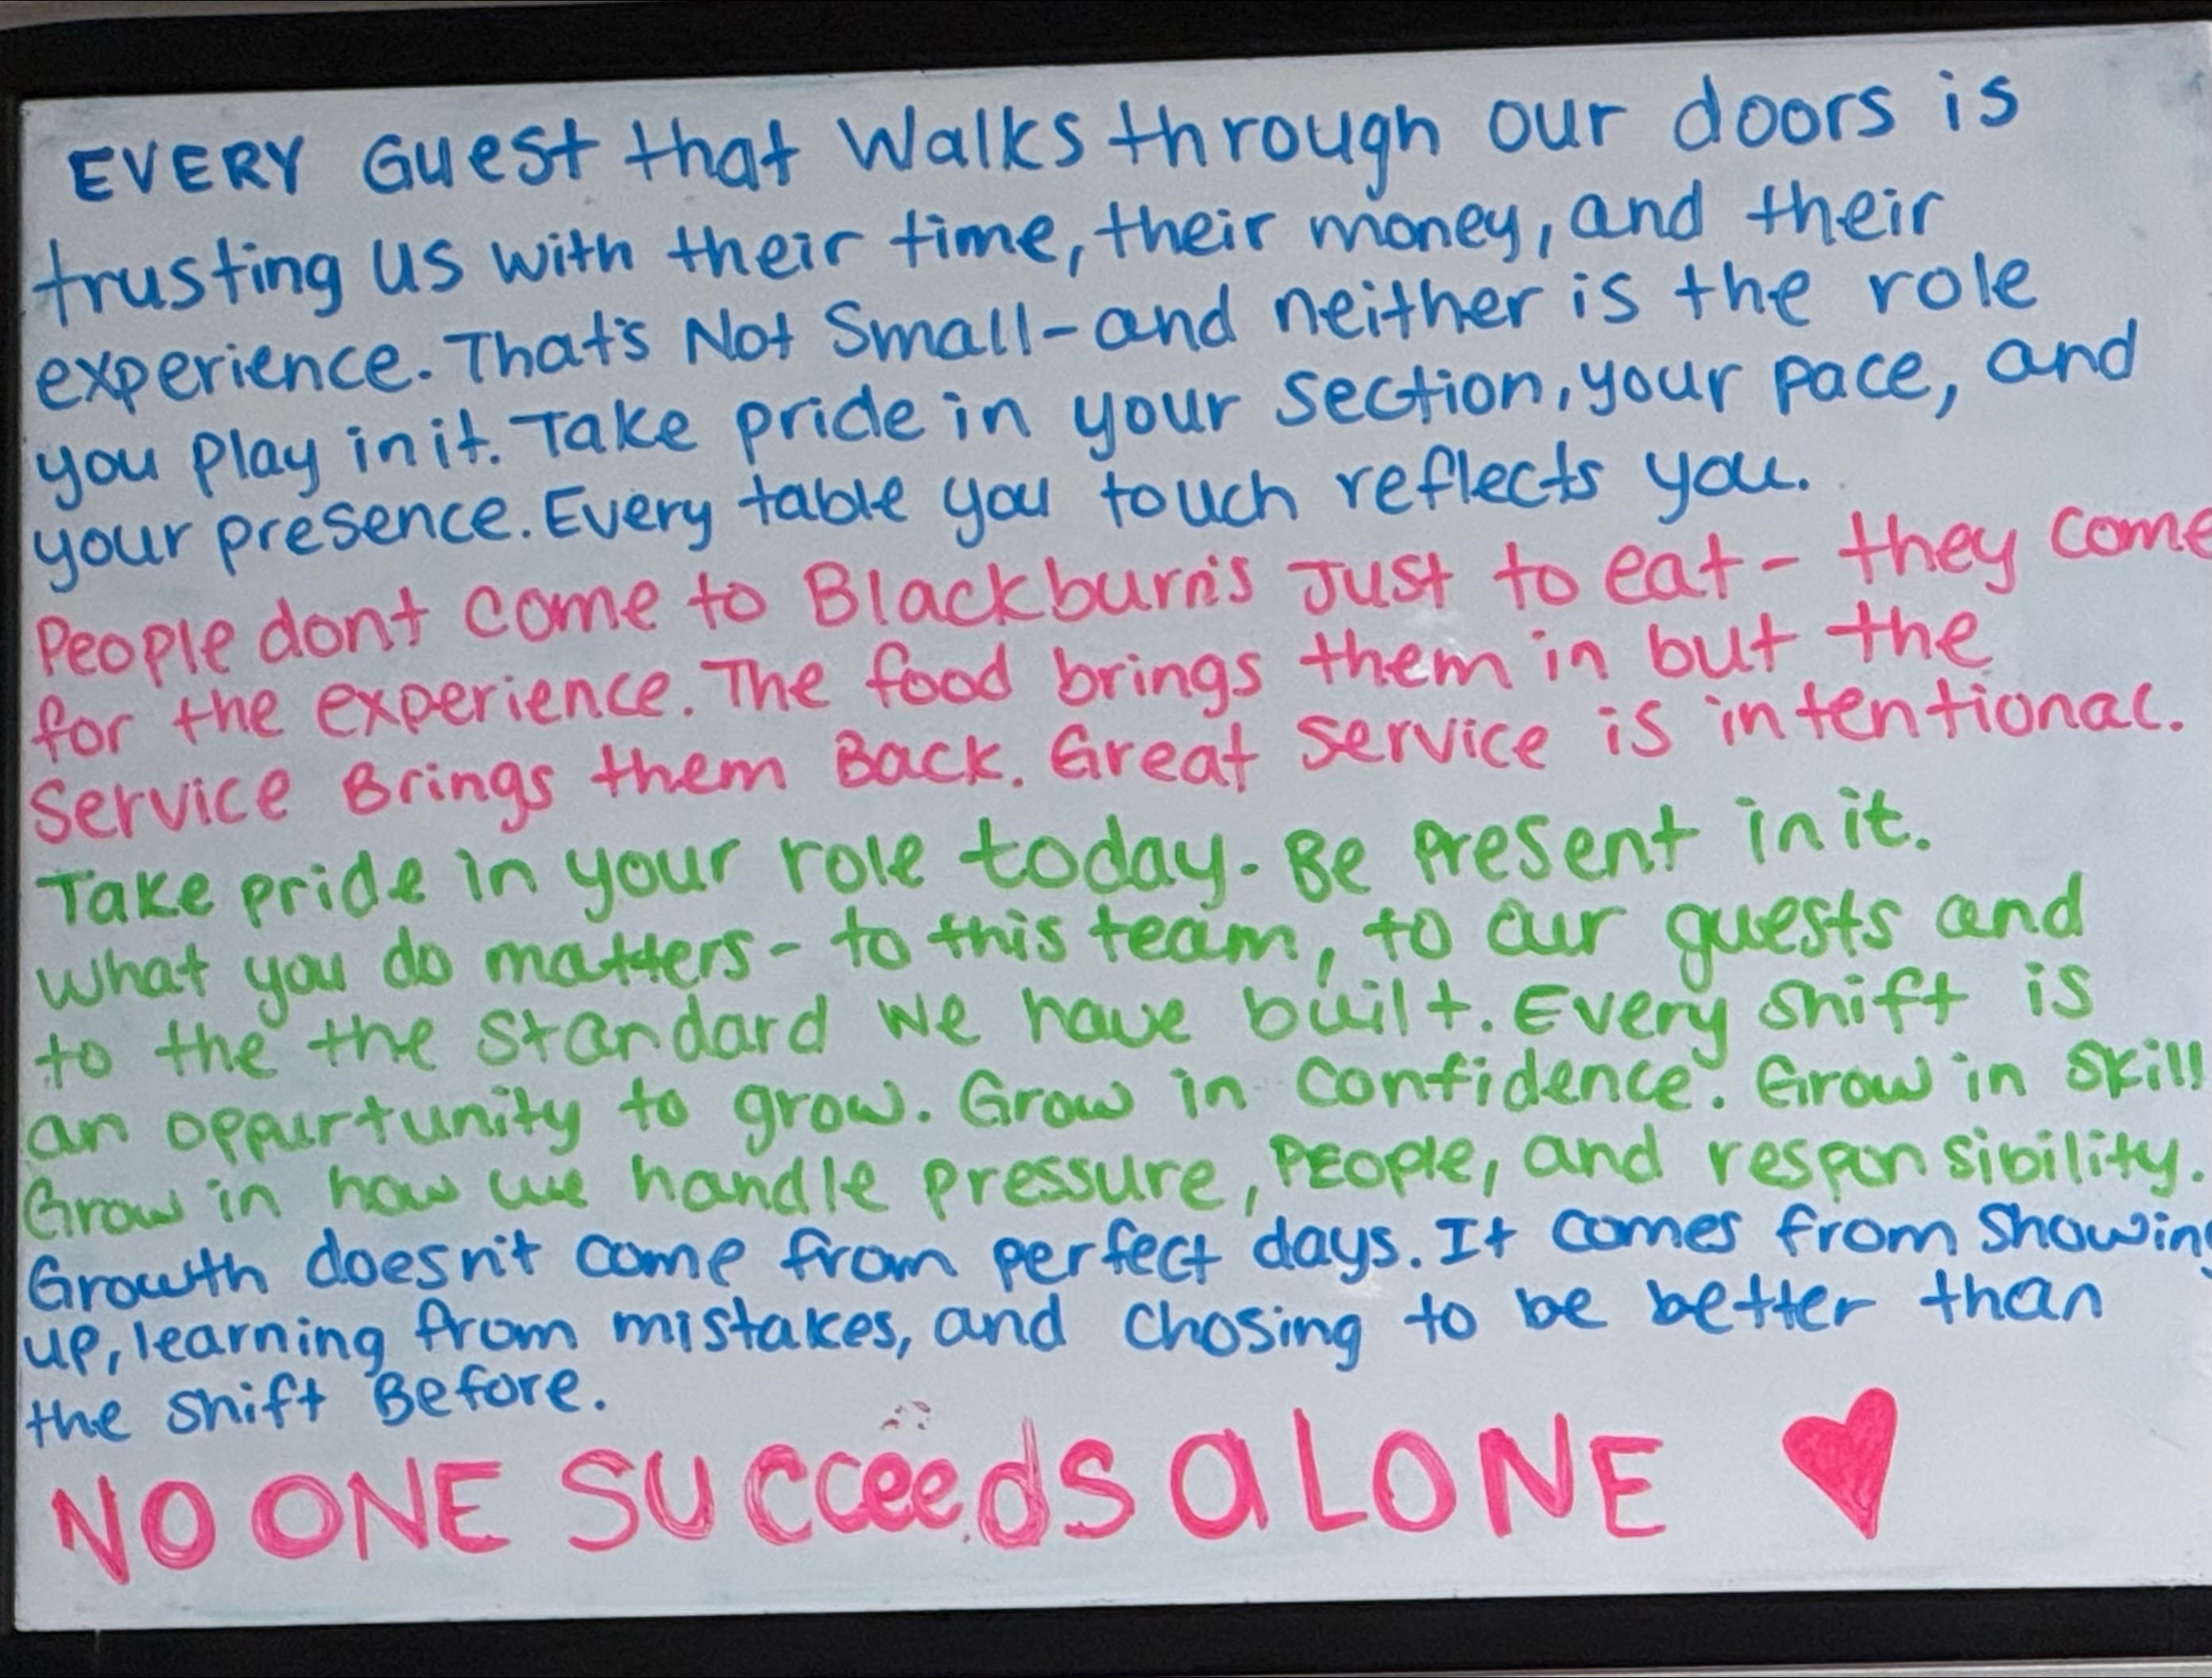 EVERY Guest that Walks through our doors is
trusting us with their time, their money, and their
experience. That's Not Small- and neither is the role
you play in it. Take pride in your section, your pace, and
your presence. Every table you touch reflects you.
People dont come to Blackburn's Just to eat- they come
for the experience. The food brings them in but the
Service Brings them Back. Great service is intentional.
Take pride in your role today. Be Present in it.
what you do matters- to this team, to our guests and
to the the standard we have built. Every shift is
an oppurtunity to grow. Grow in confidence. Grow in skill
Grow in how we handle pressure, People, and responsibility.
Growth doesn't come from perfect days. It comes from showing
up, learning from mistakes, and chosing to be better than
the shift Before.
NO ONE SUcceeds aLONE